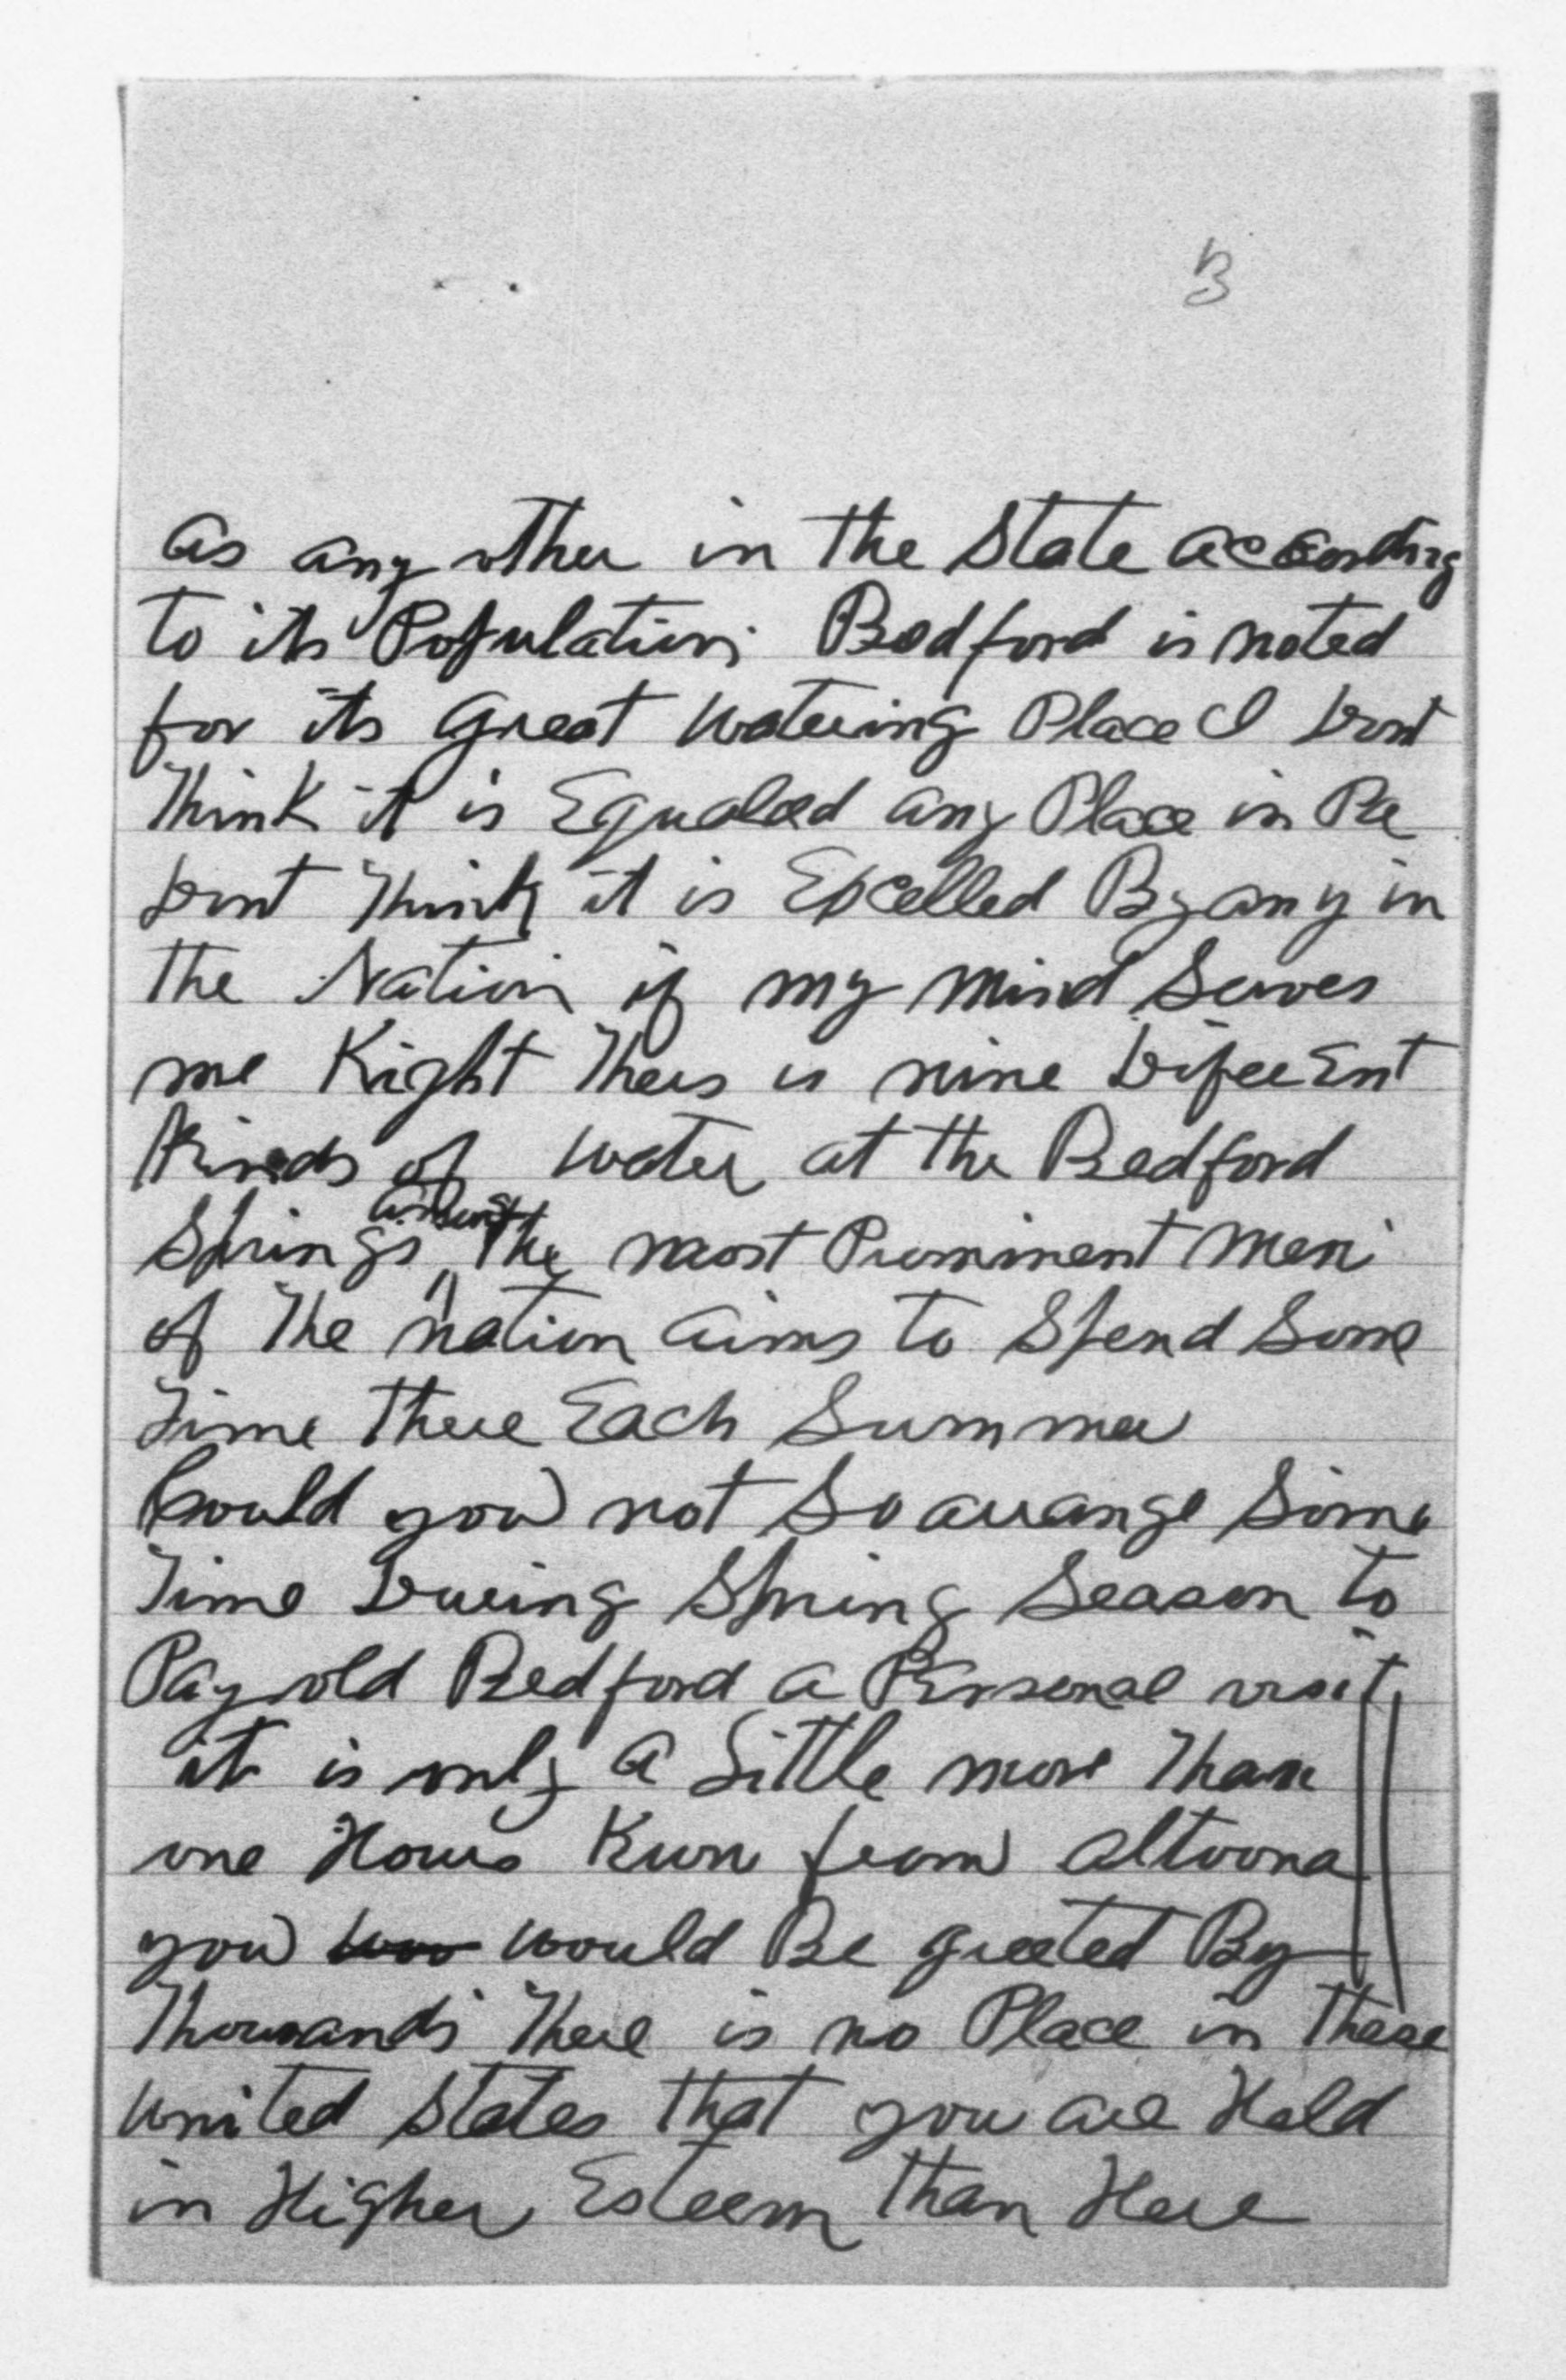 3
as any other in the State according
to its Population; Bedford is noted
for its Great watering Place I Dont
Think it is Equaled any Place in Pa
Dont Think it is Excelled By any in
the Nation if my mind Serves
me Right Theis is nine Difeerent
Kinds of water at the Bedford
Springs the most Prominent men
of The nation aims to Spend Some
Time There Each Summer
Could you not So arrange Some
Time During Spring Season to
Pay old Bedford a Personal visit
it is only a Little more Than
one Hours Run from Altoona
you would Be greeted By
Thousands There is no Place in These
united States that you are Held
in Higher Esteem Than Here